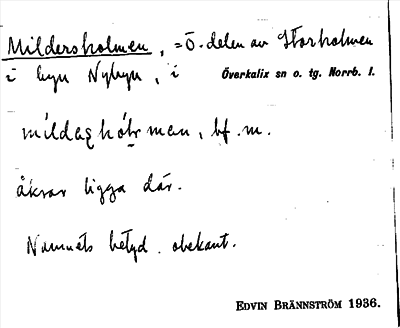 Mildersholmen, = Ö. delen av Storholmen
i byn Nybyn, i Överkalix sn o. tg. Norrb. l.
mildaṣhólmen, bf. m.
åkrar ligga där.
Namnets betyd. obekant.
EDVIN BRÄNNSTRÖM 1936.